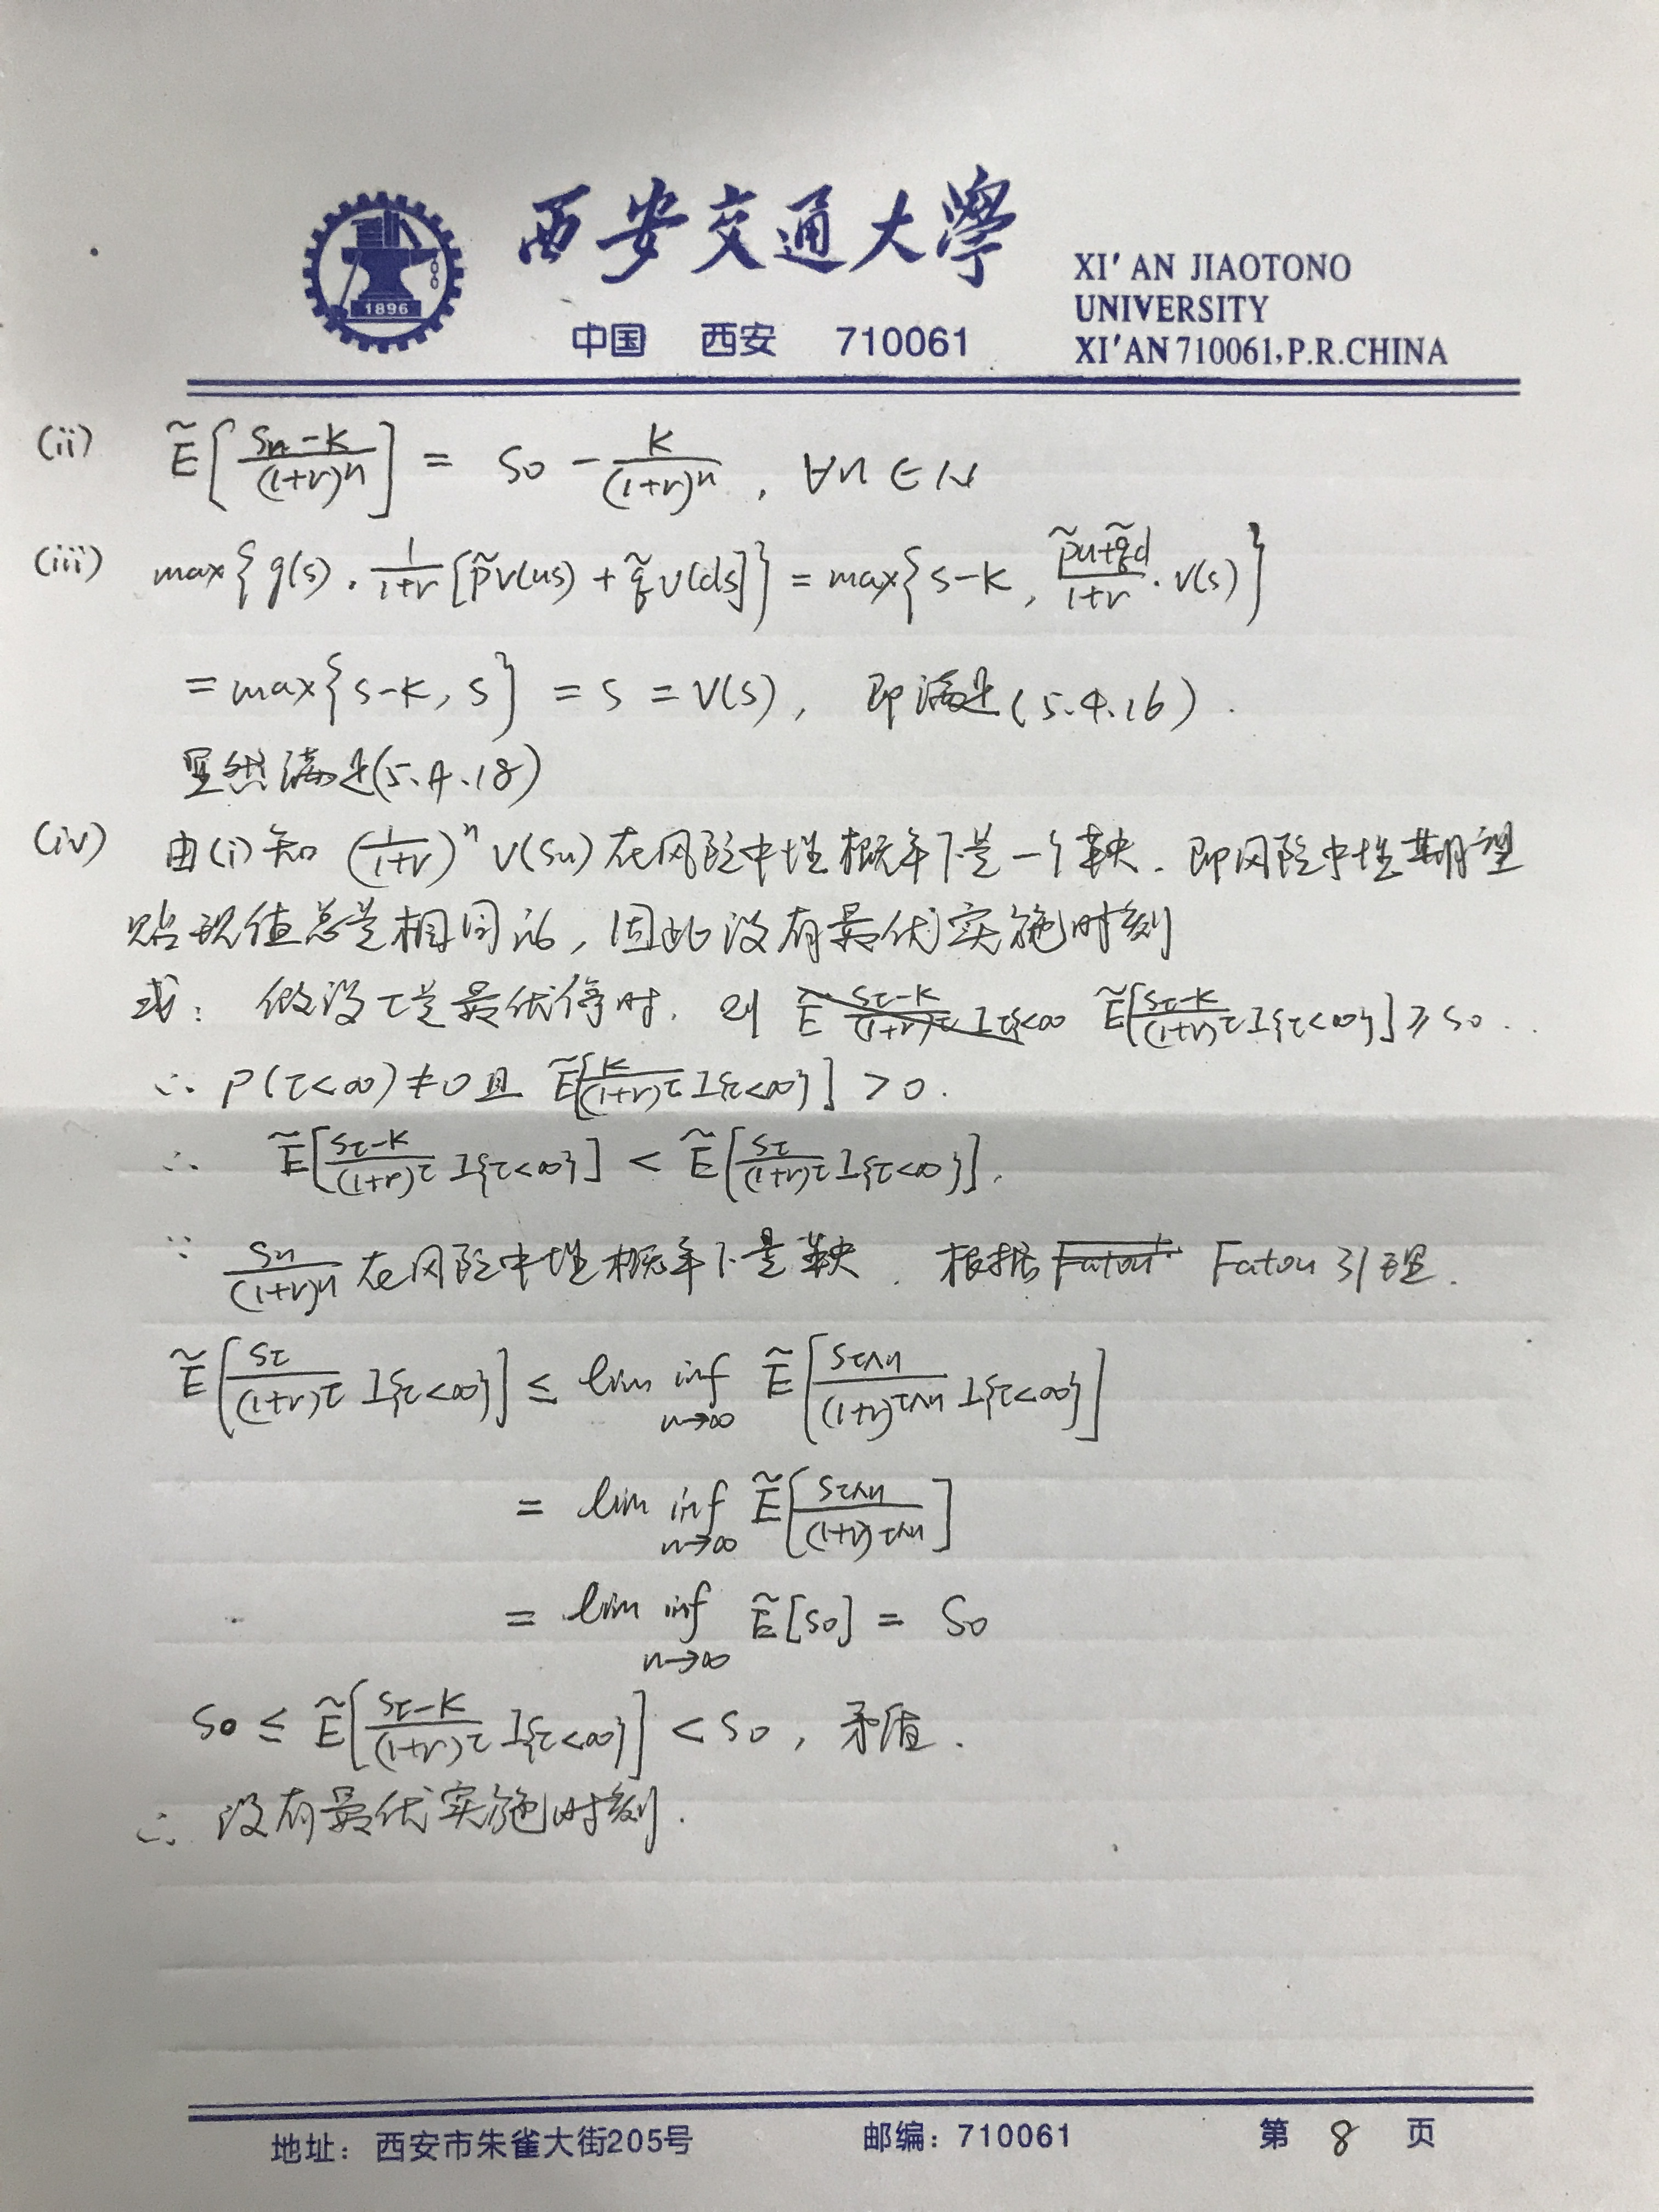 西安交通大學
XI'AN JIAOTONO
UNIVERSITY
XI'AN 710061,P.R.CHINA
1896
中国 西安 710061
(ii) Ẽ[(Sn-K)/(1+r)^n] = S0 - K/(1+r)^n , ∀n∈N
(iii) max{g(s). 1/(1+r) [p̃v(us) + q̃v(ds)]} = max{s-K, (p̃u+q̃d)/(1+r) · v(s)}
= max{s-K, s} = s = v(s), 即满足(5.4.16).
显然满足(5.4.18)
(iv) 由(i)知 (1/(1+r))^n v(Sn)在风险中性概率下是一个鞅. 即风险中性期望
贴现值总是相同的, 因此没有最优实施时刻
或: 假设τ是最优停时. 则 Ẽ[(Sτ-K)/(1+r)^τ I{τ<∞}] ≥ S0 .
∴ P(τ<∞)≠0且 Ẽ[K/(1+r)^τ I{τ<∞}] > 0.
∴ Ẽ[(Sτ-K)/(1+r)^τ I{τ<∞}] < Ẽ[Sτ/(1+r)^τ I{τ<∞}].
∵ Sn/(1+r)^n 在风险中性概率下是鞅. 根据 Fatou 引理.
Ẽ[Sτ/(1+r)^τ I{τ<∞}] ≤ lim inf n→∞ Ẽ[Sτ∧n/(1+r)^τ∧n I{τ<∞}]
= lim inf n→∞ Ẽ[Sτ∧n/(1+r)^τ∧n]
= lim inf n→∞ Ẽ[S0] = S0
S0 ≤ Ẽ[(Sτ-K)/(1+r)^τ I{τ<∞}] < S0 , 矛盾.
∴ 没有最优实施时刻.
地址：西安市朱雀大街205号 邮编：710061 第 8 页